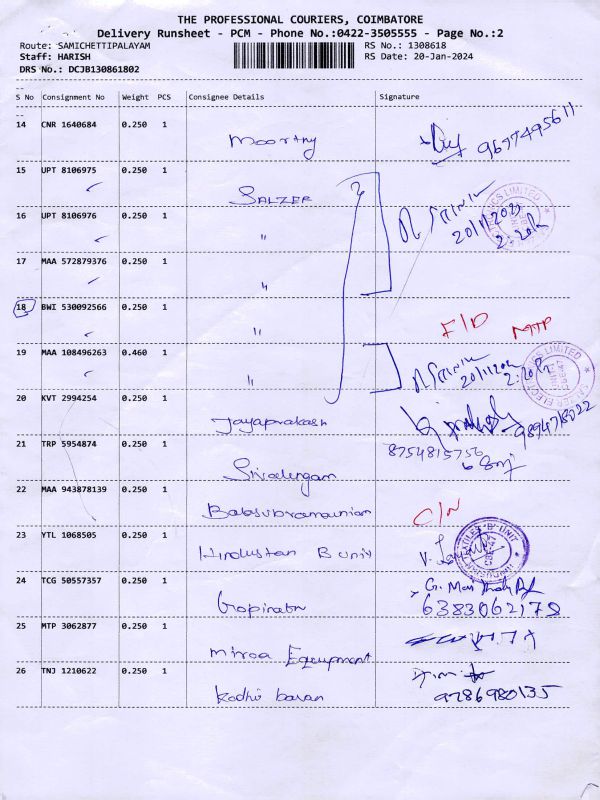 THE PROFESSIONAL COURIERS, COIMBATORE
Delivery Runsheet - PCM - Phone No.:0422-3505555 - Page No.:2
Route: SAMICHETTIPALAYAM RS No.: 1308618
Staff: HARISH RS Date: 20-Jan-2024
DRS No.: DCJB130861802
S No Consignment No Weight PCS Consignee Details Signature
14 CNR 1640684 0.250 1
Moorthy 9697495611
15 UPT 8106975 0.250 1
SALZER
16 UPT 8106976 0.250 1
" 2:20
17 MAA 572879376 0.250 1
"
18 BWI 530092566 0.250 1
" F/D MTP
19 MAA 108496263 0.460 1
"
20 KVT 2994254 0.250 1
Jayaprakash 9894718022
21 TRP 5954874 0.250 1 8754815756
Sivalingam
22 MAA 943878139 0.250 1
Balasubramaniam C/N
23 YTL 1068505 0.250 1
Hindustan B unit
24 TCG 50557357 0.250 1
Gopinath 6383062178
25 MTP 3062877 0.250 1
Equipment
26 TNJ 1210622 0.250 1
9786980135